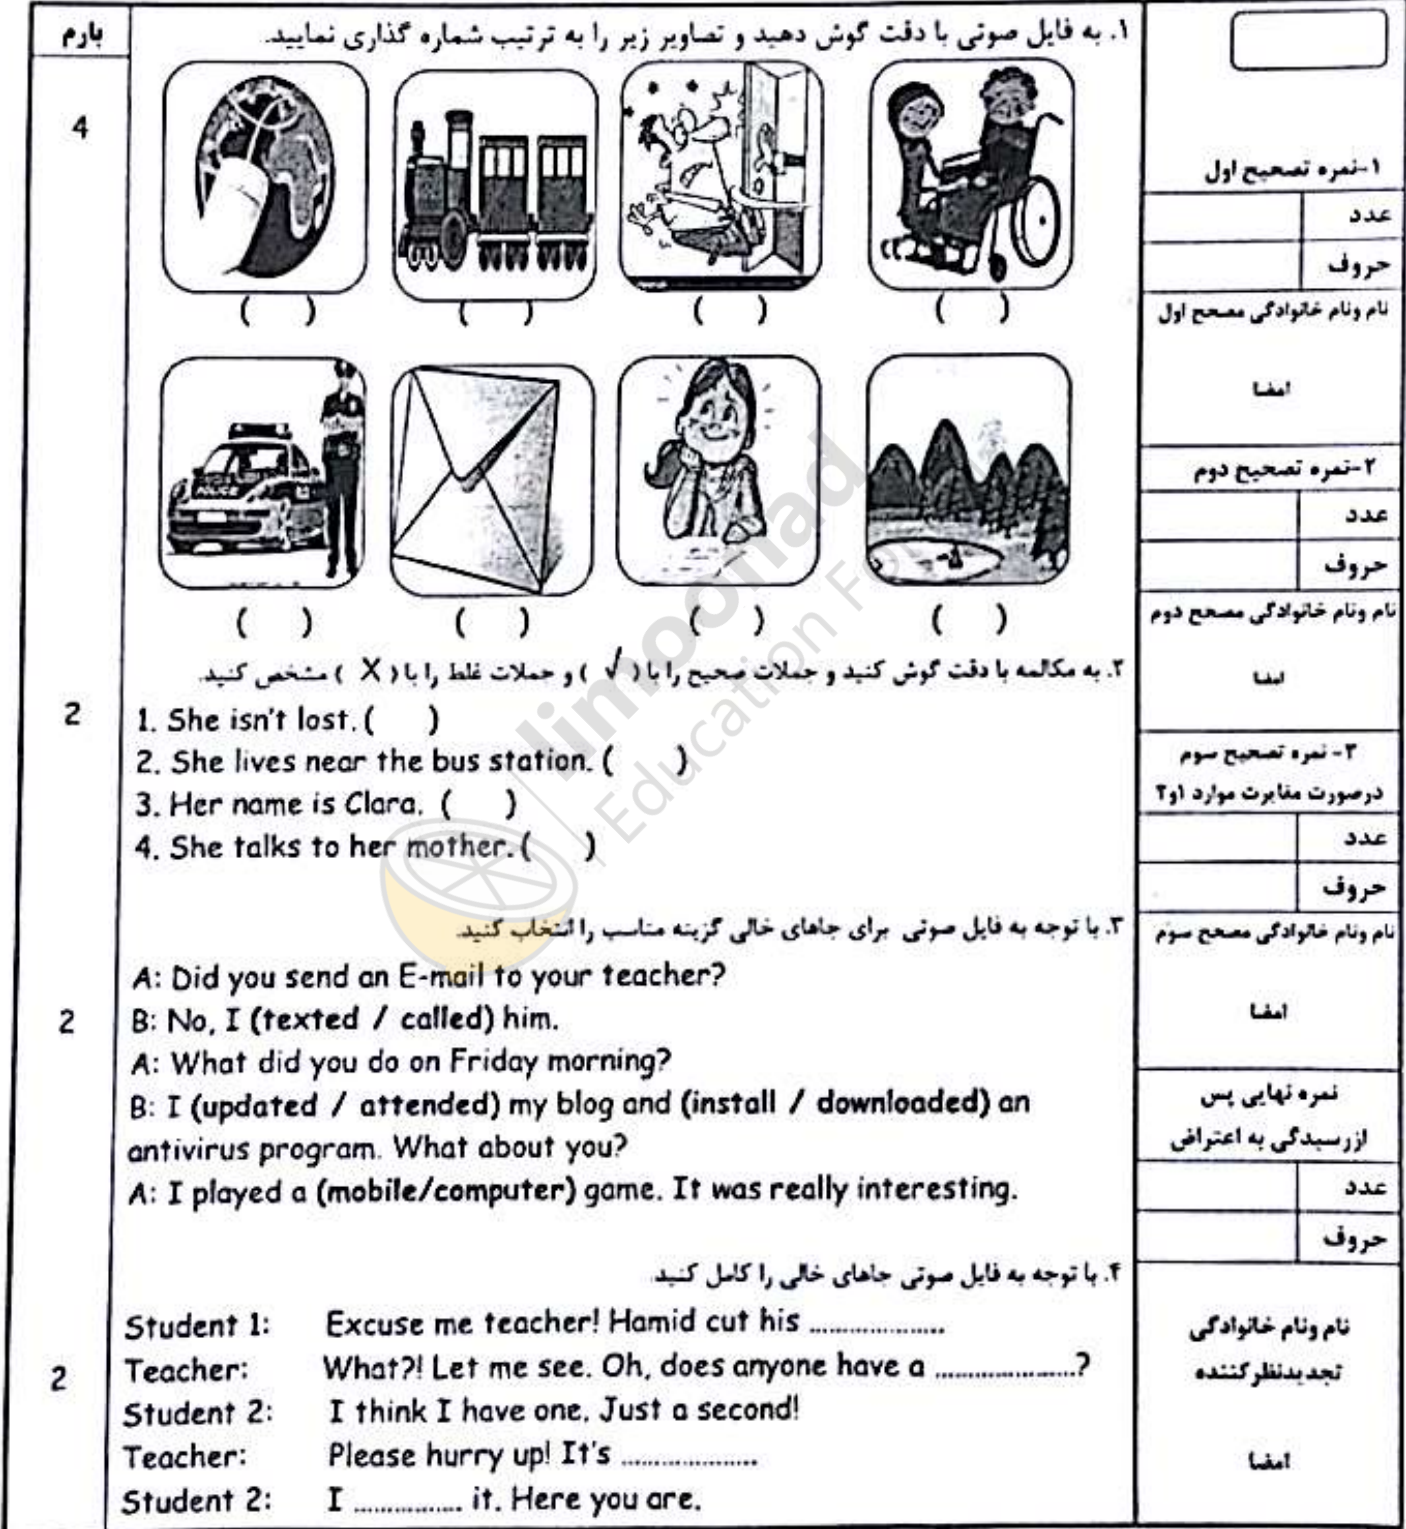 بارم
۱. به فایل صوتی با دقت گوش دهید و تصاویر زیر را به ترتیب شماره گذاری نمایید.
4
( ) ( ) ( ) ( )
POLICE
( ) ( ) ( ) ( )
۲. به مکالمه با دقت گوش کنید و جملات صحیح را با ( √ ) و جملات غلط را با ( X ) مشخص کنید.
2
1. She isn't lost. ( )
2. She lives near the bus station. ( )
3. Her name is Clara. ( )
4. She talks to her mother. ( )
۳. با توجه به فایل صوتی برای جاهای خالی گزینه مناسب را انتخاب کنید.
2
A: Did you send an E-mail to your teacher?
B: No, I (texted / called) him.
A: What did you do on Friday morning?
B: I (updated / attended) my blog and (install / downloaded) an
antivirus program. What about you?
A: I played a (mobile/computer) game. It was really interesting.
۴. با توجه به فایل صوتی جاهای خالی را کامل کنید.
2
Student 1: Excuse me teacher! Hamid cut his ....................
Teacher: What?! Let me see. Oh, does anyone have a .....................?
Student 2: I think I have one. Just a second!
Teacher: Please hurry up! It's ....................
Student 2: I ................ it. Here you are.
۱-نمره تصحیح اول
عدد
حروف
نام ونام خانوادگی مصحح اول
امضا
۲-نمره تصحیح دوم
عدد
حروف
نام ونام خانوادگی مصحح دوم
امضا
۳- نمره تصحیح سوم
درصورت مغایرت موارد ۱و۲
عدد
حروف
نام ونام خانوادگی مصحح سوم
امضا
نمره نهایی پس
ازرسیدگی به اعتراض
عدد
حروف
نام ونام خانوادگی
تجدیدنظرکننده
امضا
limoonad
Education For